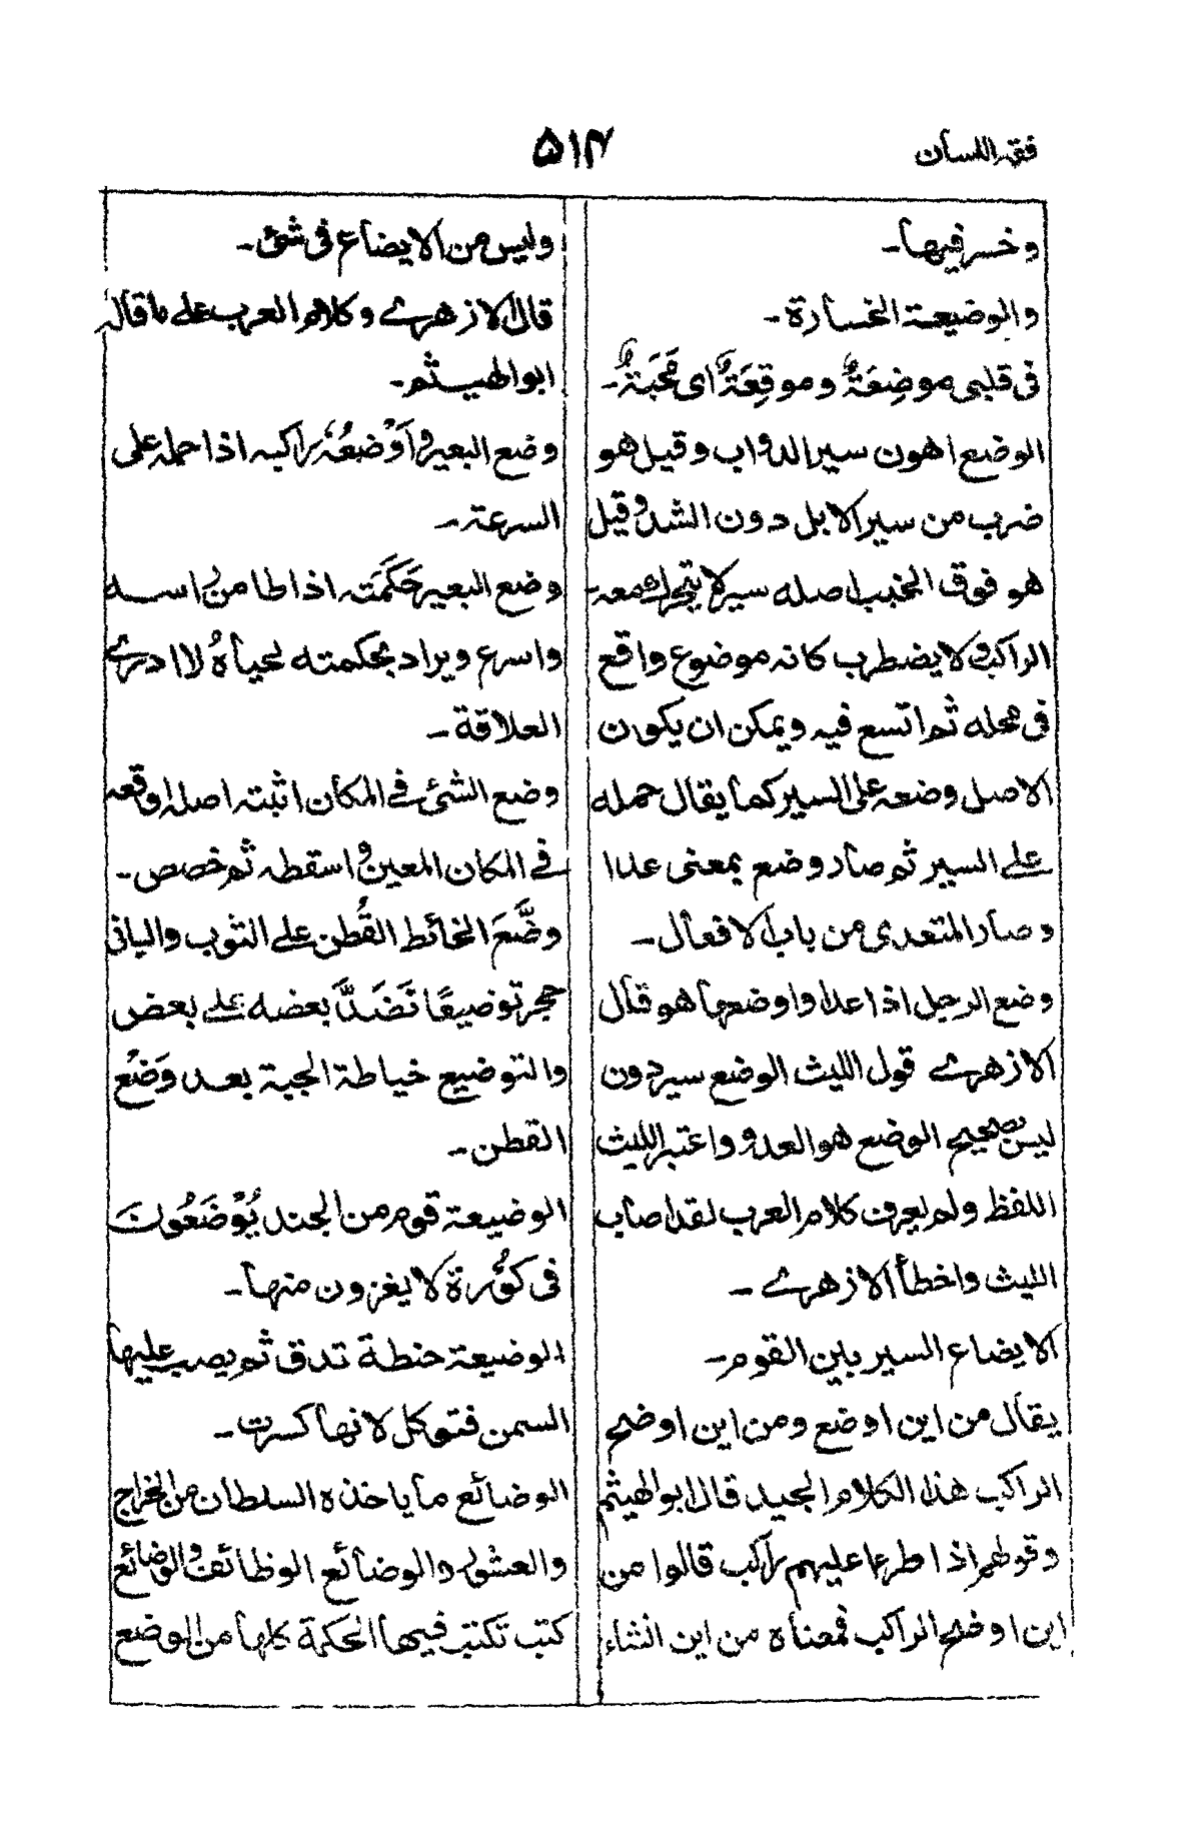 فقہ اللسان
۵۱۴
وخسر فیها۔
والوضیعۃ الخسارۃ۔
فی قلبی موضِعَۃٌ وموقِعَۃٌ ای مَحَبَۃٌ۔
الوضع اهون سیر الدواب وقیل هو
ضرب من سیر الابل دون الشد وقیل
هو فوق الخبب اصله سیر لا یتحرك معہ
الراکب ولا یضطرب کانہ موضوع واقع
فی محله ثم اتسع فیہ ویمکن ان یکون
الاصل وضعہ علی السیر کما یقال حمله
علی السیر ثم صار وضع بمعنی عدا
وصار المتعدی من باب الافعال۔
وضع الرجل اذا عدا واوضعها هو قال
الازهری قول اللیث الوضع سیر دون
لیس بصحیح الوضع هو العدو واعتبر اللیث
اللفظ ولم یعرف کلام العرب لقد اصاب
اللیث واخطأ الازهری۔
الایضاع السیر بین القوم۔
یقال من این اوضع ومن این اوضح
الراکب هذا الکلام الجید قال ابو الهیثم
وقولهم اذا طرء علیهم راکب قالوا من
این اوضح الراکب فمعناہ من این انشاء
ولیس من الایضاع فی شئ۔
قال الازهری وکلام العرب علی ما قال
ابو الهیثم۔
وضع البعیر واَوْضعُہٗ راکبہ اذا حمله علی
السرعۃ۔
وضع البعیر حَکَمَتہ اذا طامن راسه
واسرع ویراد بحکمته لحیاہُ لا ادری
العلاقۃ۔
وضع الشئ فی المکان اثبتہ اصله اوقعہ
فی المکان المعین واسقطہ ثم خصص۔
وضَّعَ الخائط القُطن علی الثوب والبانی
حجر توضیعًا نَضَدَّ بعضه علی بعض
والتوضیع خیاطۃ الجبۃ بعد وَضْع
القطن۔
الوضیعۃ قوم من الجند یُوْضَعُونَ
فی کَوُرۃ لا یغزون منها۔
الوضیعۃ حنطۃ تدق ثم یصب علیها
السمن فتوکل لانها کسرت۔
الوضائع ما یاخذہ السلطان من الخراج
والعشور والوضائع الوظائف والوضائع
کتب تکتب فیها الحکمۃ کلها من الوضع